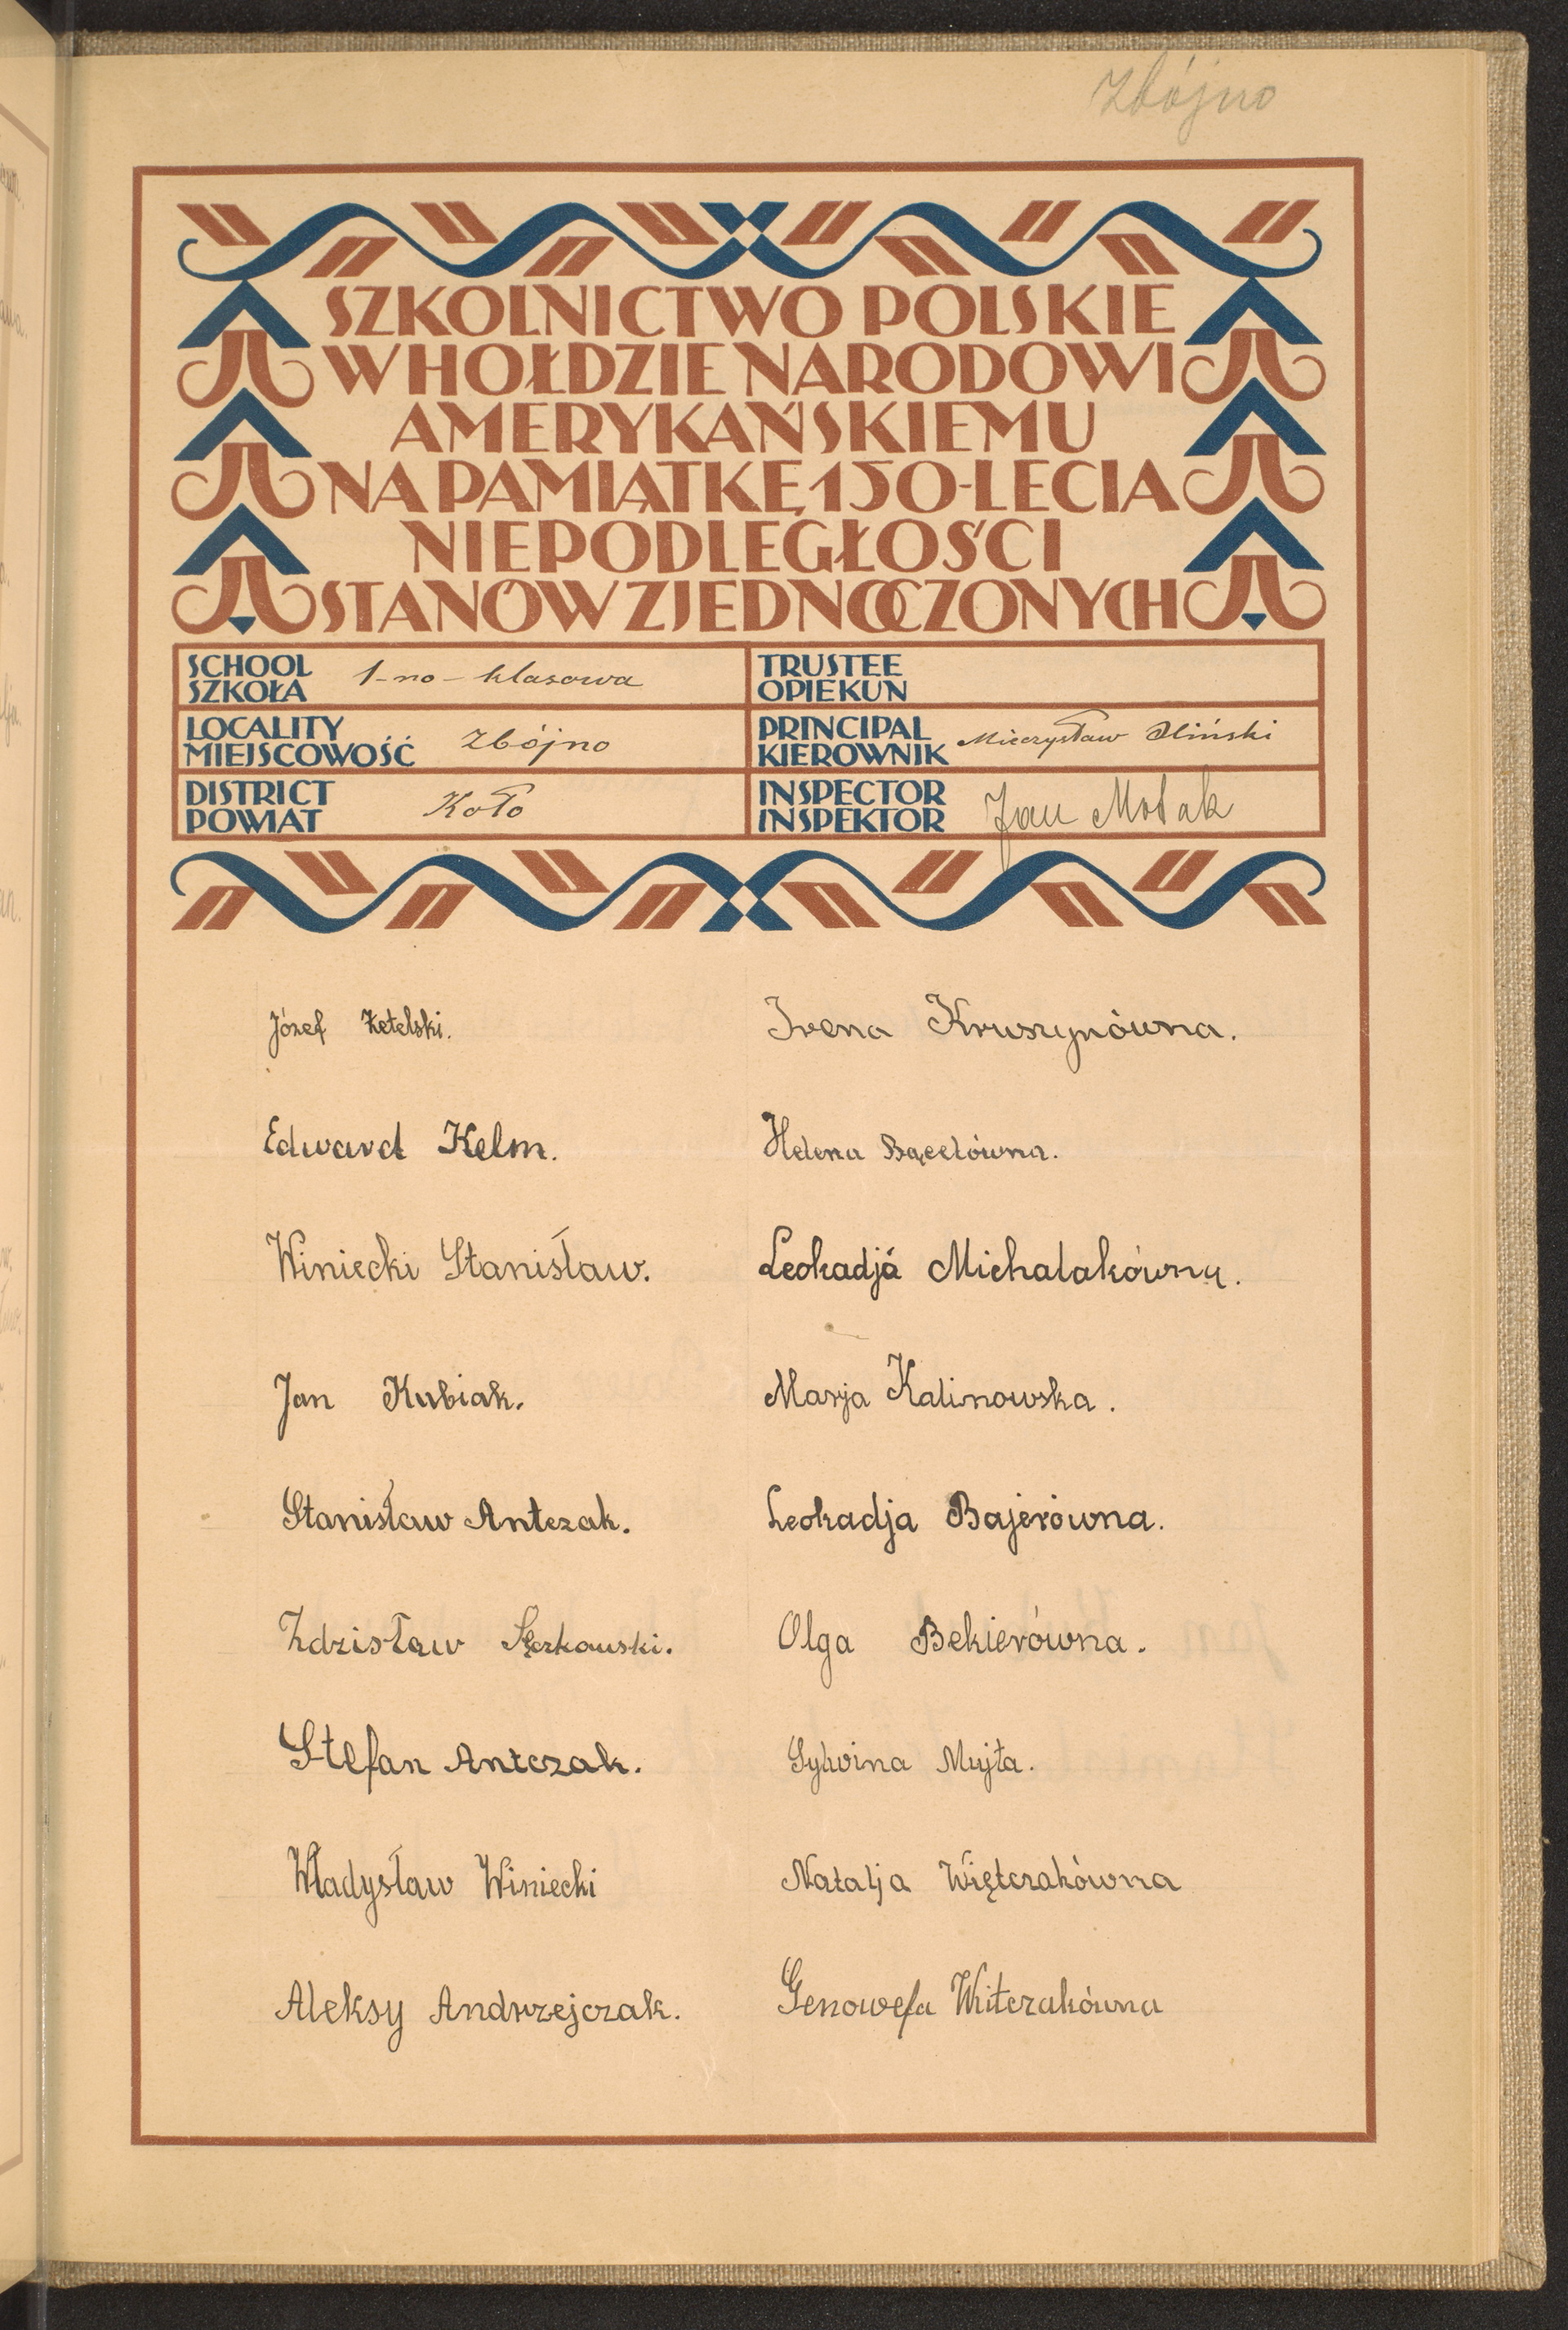 Zbójno
SZKOLNICTWO POLSKIE
W HOŁDZIE NARODOWI
AMERYKAŃSKIEMU
NA PAMIĄTKĘ 150-LECIA
NIEPODLEGŁOŚCI
STANÓW ZJEDNOCZONYCH
SCHOOL
SZKOŁA 1-no-klasowa
TRUSTEE
OPIEKUN
LOCALITY
MIEJSCOWOŚĆ Zbójno
PRINCIPAL
KIEROWNIK Mieczysław Iliński
DISTRICT
POWIAT Koło
INSPECTOR
INSPEKTOR Jan
Józef Ketelski.
Irena Kruszynówna.
Edward Kelm.
Helena
Winiecki Stanisław.
Leokadjá Michalakówna.
Jan Kubiak.
Marja Kalinowska.
Stanisław Antczak.
Leokadja Bajerówna.
Zdzisław
Olga Bekierówna.
Stefan Antczak.
Sylwina Mujta.
Władysław Winiecki
Natalja Więtczakówna
Aleksy Andrzejczak.
Genowefa Witczakówna